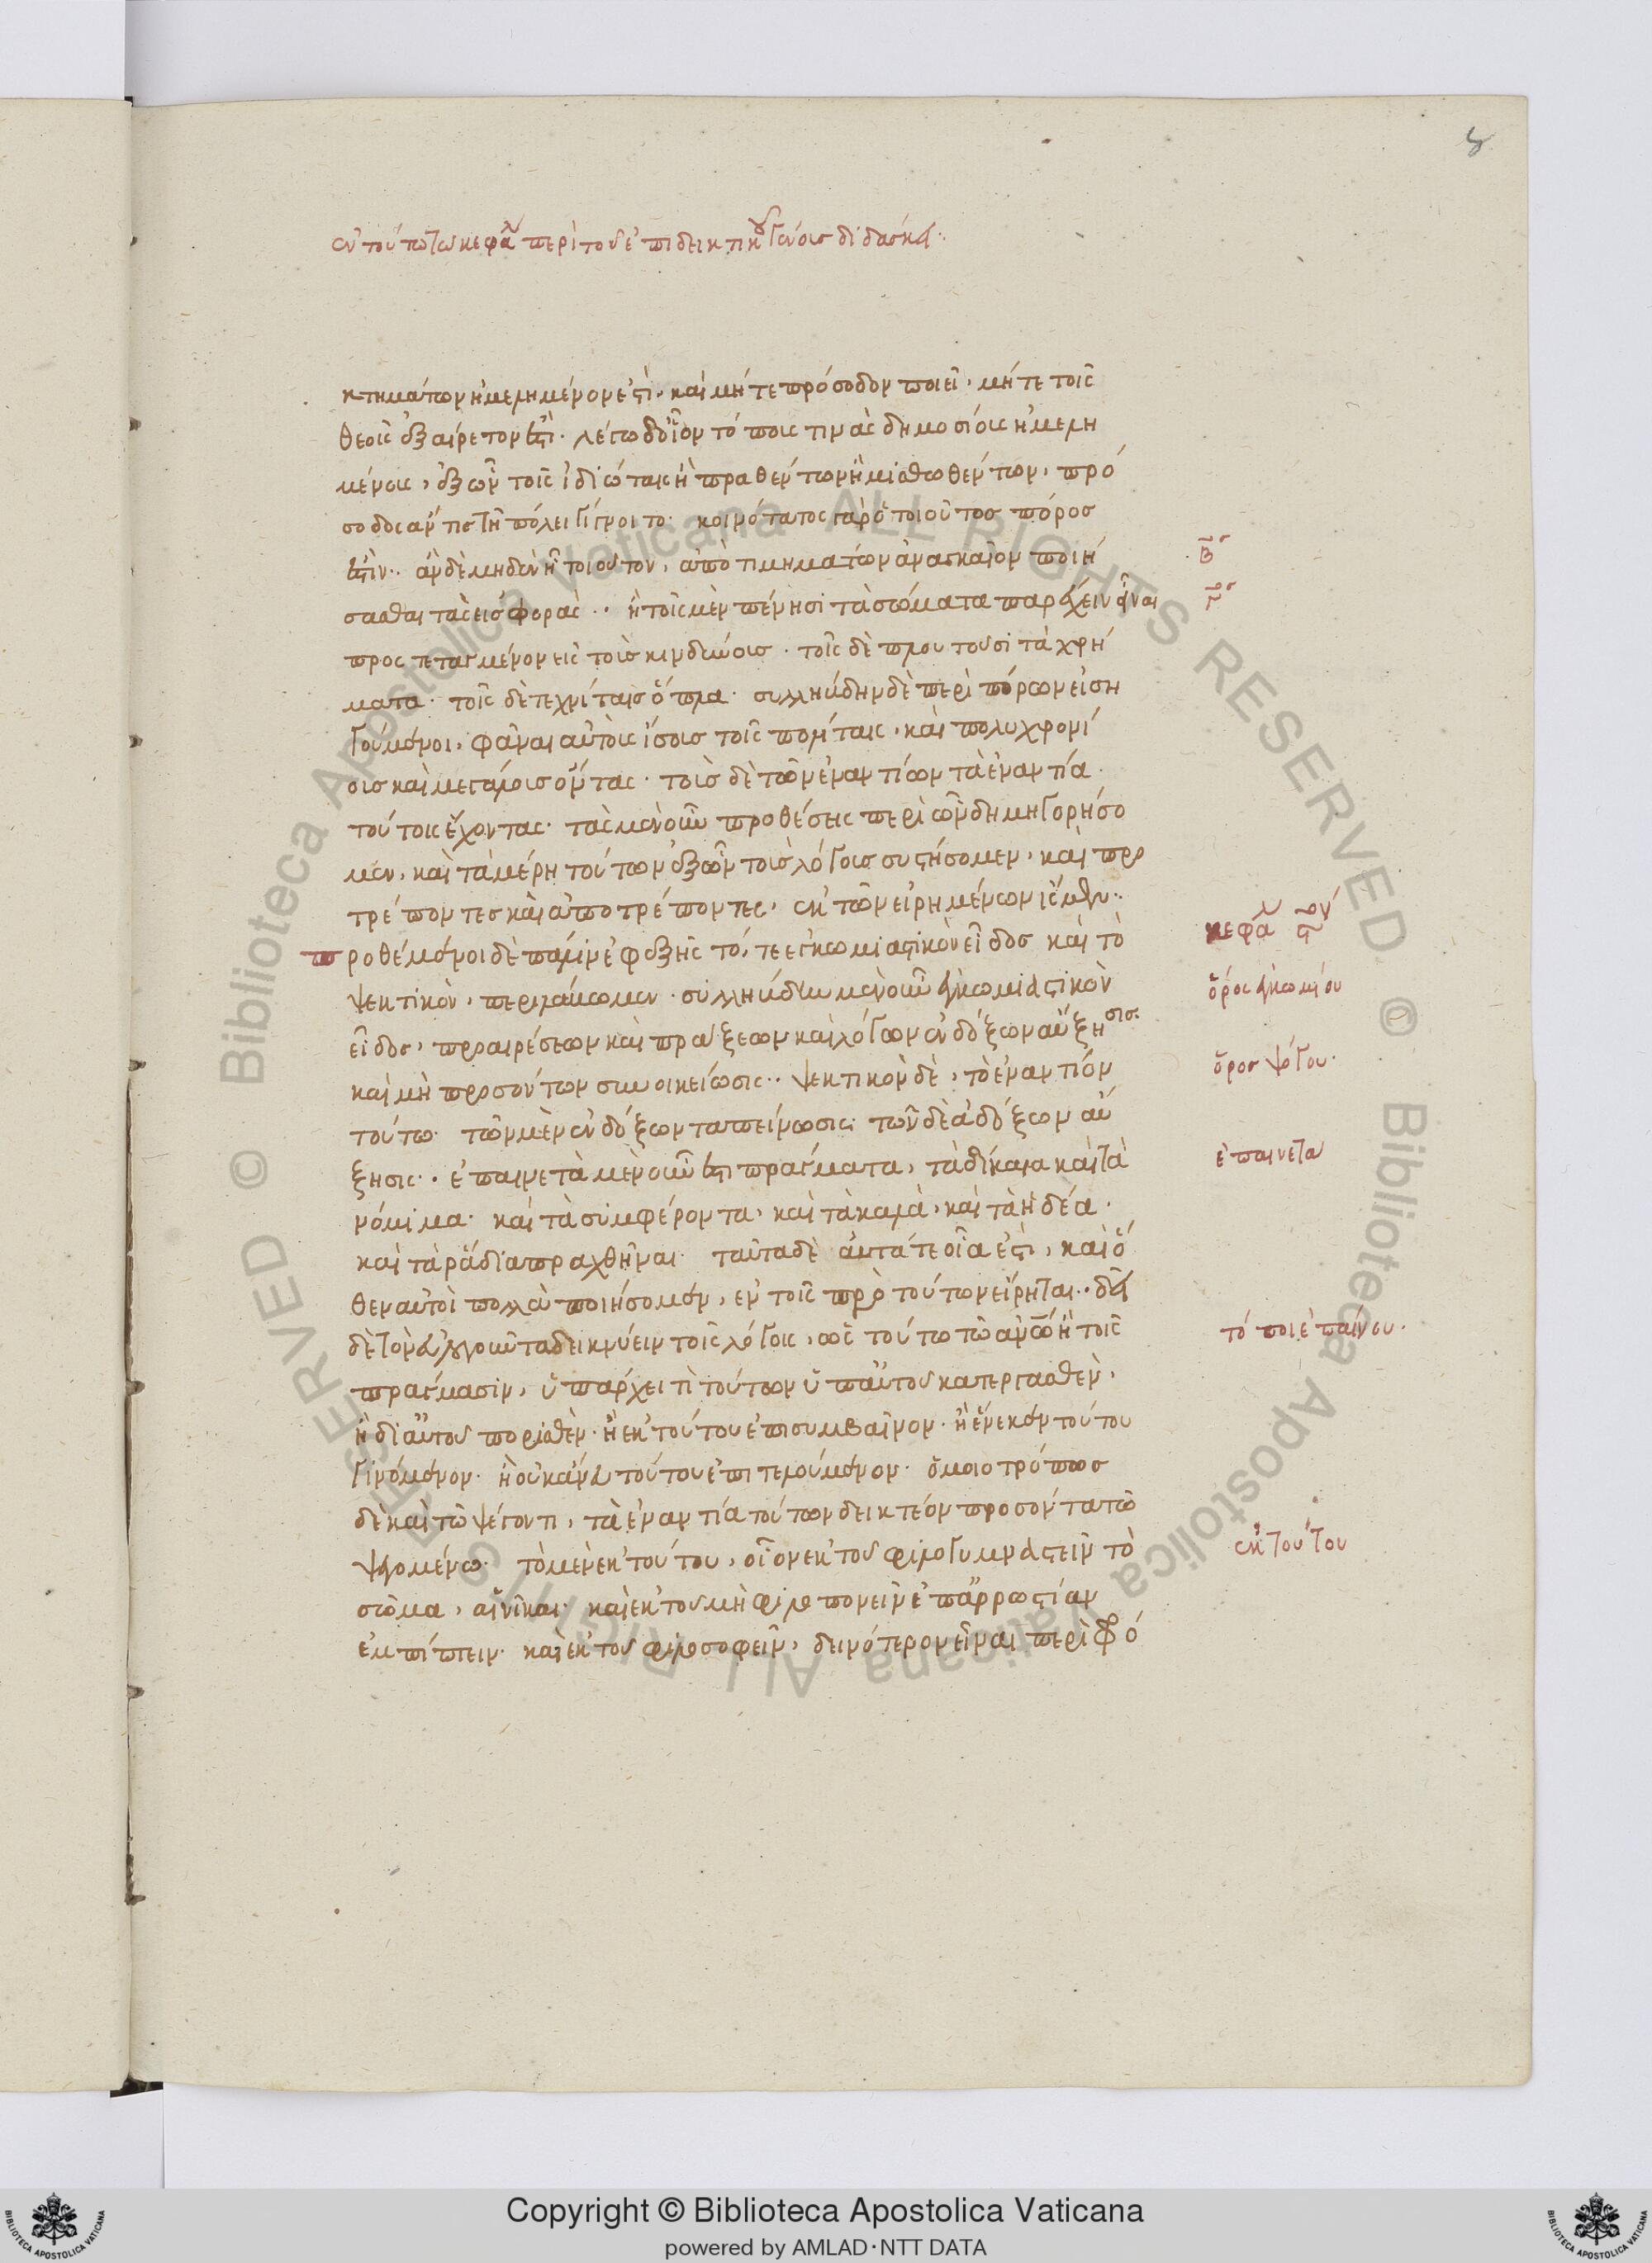 8
ἐν τούτω τῶ κεφαλ περὶ τοῦ ἐπιδεικτικοῦ γένους διδάσκει·
κτημάτων ἠμελημένον ἐστὶ, καὶ μήτε πρόσοδον ποιεῖ, μήτε τοῖς
θεοῖς ἐξαίρετον ἐστί· λέγω δὲ οἷον τόπους τινὰς δημοσίους ἠμελη
μένους, ἐξ ὧν τοῖς ἰδιώταις ἢ πραθέντων ἢ μισθωθέντων, πρό
σοδος ἄν τις τῆ πόλει γίγνοιτο· κοινότατος γὰρ ὁ τοιοῦτος πόρος
ἐστίν·· ἂν δὲ μηδὲν ἦ τοιοῦτον, ἀπὸ τιμημάτων ἀναγκαῖον ποιή
σασθαι τὰς εἰσφοράς·· ἢ τοῖς μὲν πένησι τὰ σώματα παρέχειν εἶναι
προστεταγμένον εἰς τοὺς κινδύνους· τοῖς δὲ πλουτοῦσι τὰ χρή
ματα· τοῖς δὲ τεχνίταις ὅπλα· συλλήβδην δὲ περὶ πόρων εἰση
γούμενοι, φᾶναι αὐτοὺς ἴσους τοῖς πολίταις, καὶ πολυχρονί
ους καὶ μεγάλους ὄντας· τοὺς δὲ τῶν ἐναντίων τὰ ἐναντία
τούτοις ἔχοντας· τὰς μὲν οὖν προθέσεις περὶ ὧν δημηγορήσο
μεν, καὶ τὰ μέρη τούτων ἐξ ὧν τοὺς λόγους συστήσομεν, καὶ προ
τρέποντες καὶ ἀποτρέποντες, ἐκ τῶν εἰρημένων ἴσμεν··
προθέμενοι δὲ πάλιν ἐφεξῆς τό, τε ἐγκωμιαστικὸν εἶδος καὶ τὸ
ψεκτικὸν, περιλάβωμεν· συλλήβδην μὲν οὖν ἐγκωμιαστικὸν
εἶδος, προαιρέσεων καὶ πράξεων καὶ λόγων ἐνδόξων αὔξησις·
καὶ μὴ προσόντων συνοικείωσις·· ψεκτικὸν δὲ, τὸ ἐναντίον
τούτω· τῶν μὲν ἐνδόξων ταπείνωσις· τῶν δὲ ἀδόξων αὔ
ξησις·· ἐπαινετὰ μὲν οὖν ἐστι πράγματα, τὰ δίκαια καὶ τὰ
νόμιμα· καὶ τὰ συμφέροντα, καὶ τὰ καλὰ, καὶ τὰ ἡδέα·
καὶ τὰ ῥάδια πραχθῆναι· ταῦτα δὲ αὐτά τε οἷα ἐστὶ, καὶ ὅ
θεν αὐτοὶ πολλὰ ποιήσομεν, ἐν τοῖς πρὸ τούτων εἴρηται·· δεῖ
δὲ τὸν εὐλογοῦντα δεικνύειν τοῖς λόγοις, ὡς τούτω τῶ ἀνθρώπω ἢ τοῖς
πράγμασιν, ὑπάρχει τὶ τούτων ὑπ' αὐτοῦ κατεργασθὲν,
ἢ δι' αὐτοῦ πορισθὲν· ἢ ἐκ τούτου ἐπισυμβαῖνον· ἢ ἕνεκεν τούτου
γινόμενον· ἢ οὐκ ἄνευ τούτου ἐπιτελούμενον· ὁμοιοτρόπως
δὲ καὶ τῶ ψέγοντι, τὰ ἐναντία τούτων δεικτέον προσόντα τῶ
ψεγομένω· τὸ μὲν ἐκ τούτου, οἷον ἐκ τοῦ φιλογυμναστεῖν τὸ
σῶμα, καὶ ἐκ τοῦ μὴ φιλοπονεῖν ἐπ' ἀρρωστίαν
ἐμπίπτειν· καὶ ἐκ τοῦ φιλοσοφεῖν, δεινότερον εἶναι περὶ φρό
β΄
γ΄
κεφαλ
ὅρος ἐγκωμίου
ὅρος ψόγου·
ἐπαινετὰ
τόποι ἐπαίνου·
ἐκ τούτου
Copyright © Biblioteca Apostolica Vaticana
powered by AMLAD·NTT DATA